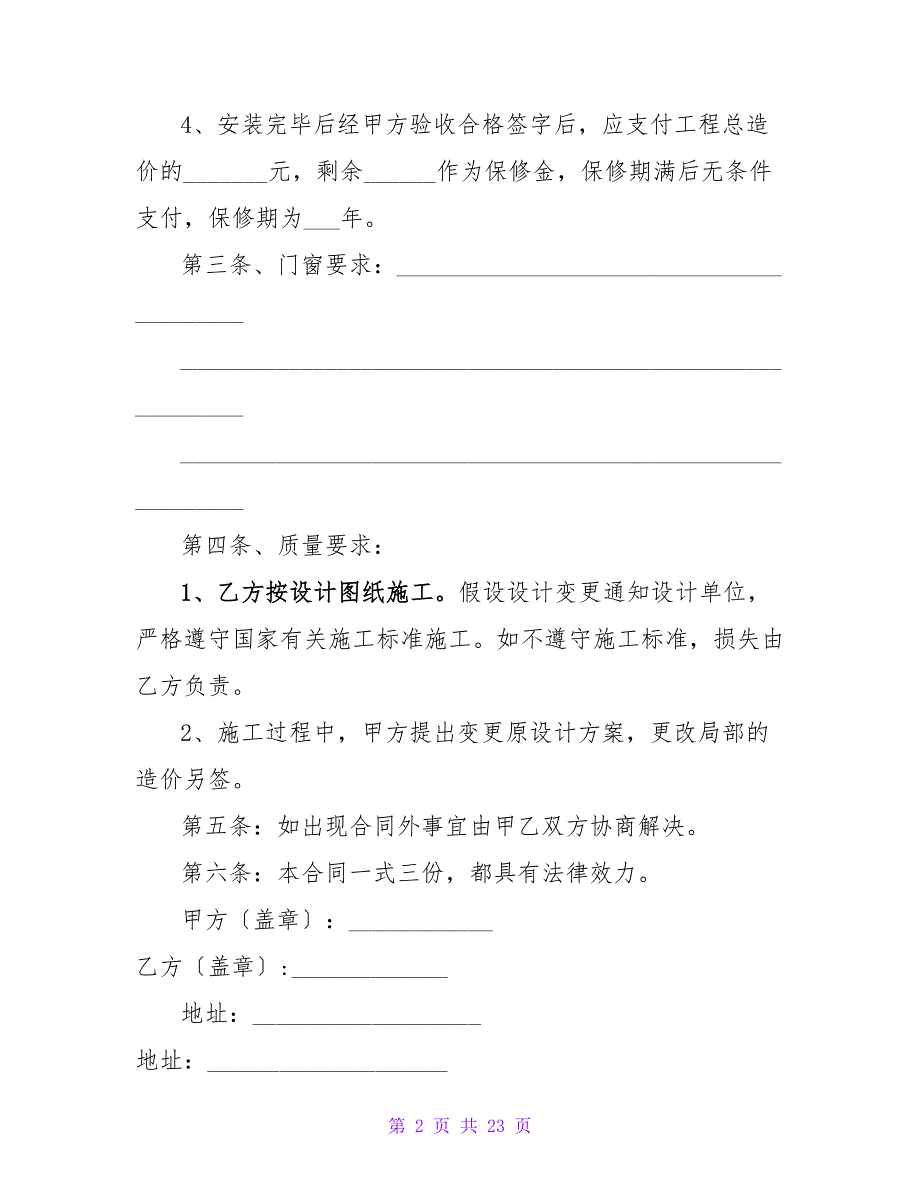 4、安装完毕后经甲方验收合格签字后，应支付工程总造
价的_______元，剩余______作为保修金，保修期满后无条件
支付，保修期为___年。
第三条、门窗要求：________________________________
_________
__________________________________________________
_________
__________________________________________________
_________
第四条、质量要求：
1、乙方按设计图纸施工。假设设计变更通知设计单位，
严格遵守国家有关施工标准施工。如不遵守施工标准，损失由
乙方负责。
2、施工过程中，甲方提出变更原设计方案，更改局部的
造价另签。
第五条：如出现合同外事宜由甲乙双方协商解决。
第六条：本合同一式三份，都具有法律效力。
甲方〔盖章〕：____________
乙方〔盖章〕:_____________
地址：___________________
地址：____________________
第 2 页 共 23 页